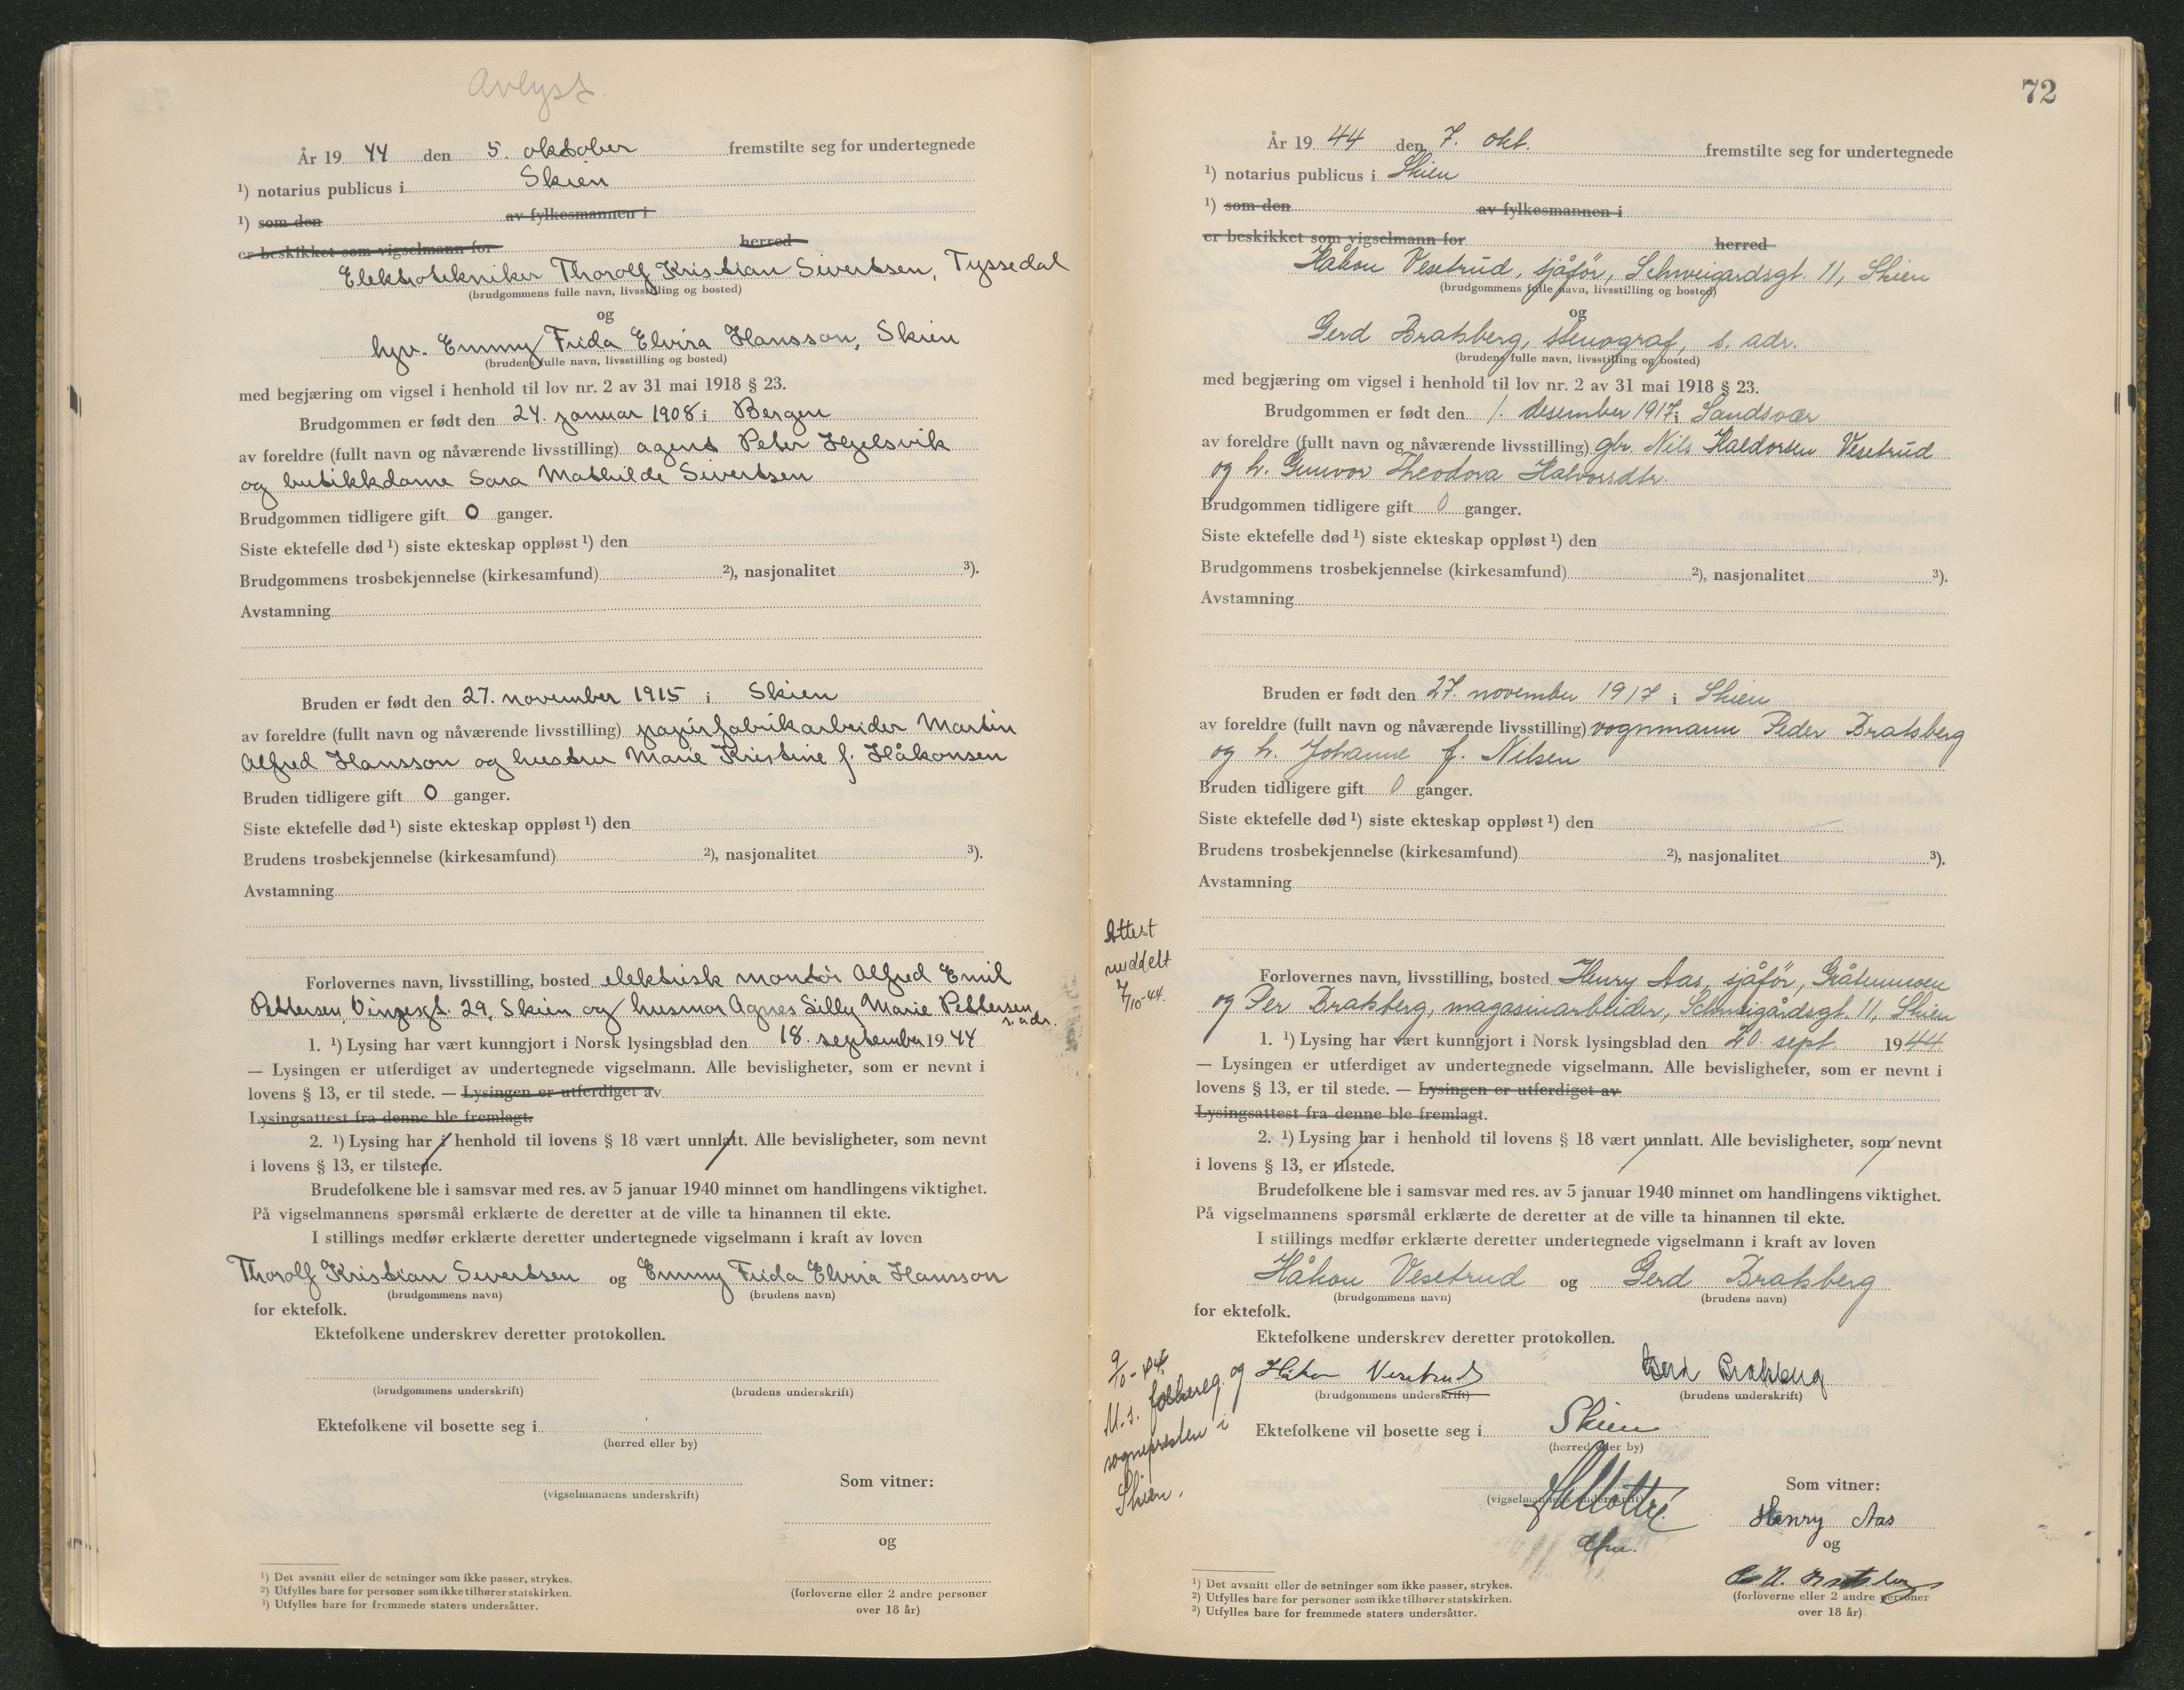 Avlyst.
År 19 44 den 5. oktober fremstilte seg for undertegnede
¹) notarius publicus i Skien
¹) som den av fylkesmannen i
er beskikket som vigselmann for herred
Elektrotekniker Thorolf Kristian Sivertsen, Tyssedal
(brudgommens fulle navn, livsstilling og bosted)
og
hgv. Emmy Frida Elvira Hansson, Skien
(brudens fulle navn, livsstilling og bosted)
med begjæring om vigsel i henhold til lov nr. 2 av 31 mai 1918 § 23.
Brudgommen er født den 24. januar 1908 i Bergen
av foreldre (fullt navn og nåværende livsstilling) agent Peter Hjelsvik
og butikkdame Sara Mathilde Sivertsen
Brudgommen tidligere gift 0 ganger.
Siste ektefelle død ¹) siste ekteskap oppløst ¹) den
Brudgommens trosbekjennelse (kirkesamfund) ²), nasjonalitet ³).
Avstamning
Bruden er født den 27. november 1915 i Skien
av foreldre (fullt navn og nåværende livsstilling) papirfabrikarbeider Martin
Alfred Hansson og hustru Marie Kristine f. Håkonsen
Bruden tidligere gift 0 ganger.
Siste ektefelle død ¹) siste ekteskap oppløst ¹) den
Brudens trosbekjennelse (kirkesamfund) ²), nasjonalitet ³).
Avstamning
Forlovernes navn, livsstilling, bosted elektrisk montør Alfred Emil
Pettersen, Vingesgt. 29, Skien og husmor Agnes Silly Marie Pettersen
s. adr.
1. ¹) Lysing har vært kunngjort i Norsk lysingsblad den 18. september 19 44
— Lysingen er utferdiget av undertegnede vigselmann. Alle bevisligheter, som er nevnt i
lovens § 13, er til stede. — Lysingen er utferdiget av
Lysingsattest fra denne ble fremlagt.
2. ¹) Lysing har i henhold til lovens § 18 vært unnlatt. Alle bevisligheter, som nevnt
i lovens § 13, er tilstede.
Brudefolkene ble i samsvar med res. av 5 januar 1940 minnet om handlingens viktighet.
På vigselmannens spørsmål erklærte de deretter at de ville ta hinannen til ekte.
I stillings medfør erklærte deretter undertegnede vigselmann i kraft av loven
Thorolf Kristian Sivertsen og Emmy Frida Elvira Hansson
(brudgommens navn) (brudens navn)
for ektefolk.
Ektefolkene underskrev deretter protokollen.
(brudgommens underskrift) (brudens underskrift)
Ektefolkene vil bosette seg i
(herred eller by)
Som vitner:
(vigselmannens underskrift)
og
(forloverne eller 2 andre personer
over 18 år)
¹) Det avsnitt eller de setninger som ikke passer, strykes.
²) Utfylles bare for personer som ikke tilhører statskirken.
³) Utfylles bare for fremmede staters undersåtter.
72
År 19 44 den 7. okt. fremstilte seg for undertegnede
¹) notarius publicus i Skien
¹) som den av fylkesmannen i
er beskikket som vigselmann for herred
Håkon Vesetrud, sjåfør, Schweigardsgt. 11, Skien
(brudgommens fulle navn, livsstilling og bosted)
og
Gerd Bratsberg, stenograf, s. adr.
(brudens fulle navn, livsstilling og bosted)
med begjæring om vigsel i henhold til lov nr. 2 av 31 mai 1918 § 23.
Brudgommen er født den 1. desember 1917 i Sandsvær
av foreldre (fullt navn og nåværende livsstilling) gbr. Nils Haldorsen Vesetrud
og h. Gunvor Theodora Halvorsdtr.
Brudgommen tidligere gift 0 ganger.
Siste ektefelle død ¹) siste ekteskap oppløst ¹) den
Brudgommens trosbekjennelse (kirkesamfund) ²), nasjonalitet ³).
Avstamning
Bruden er født den 27. november 1917 i Skien
av foreldre (fullt navn og nåværende livsstilling) vognmann Peder Bratsberg
og h. Johanne f. Nilsen
Bruden tidligere gift 0 ganger.
Siste ektefelle død ¹) siste ekteskap oppløst ¹) den
Brudens trosbekjennelse (kirkesamfund) ²), nasjonalitet ³).
Avstamning
Attest
meddelt
7/10-44.
Forlovernes navn, livsstilling, bosted Henry Aas, sjåfør, Gråtenmoen
og Per Bratsberg, magasinarbeider, Schweigårdsgt. 11, Skien
1. ¹) Lysing har vært kunngjort i Norsk lysingsblad den 20. sept. 19 44
— Lysingen er utferdiget av undertegnede vigselmann. Alle bevisligheter, som er nevnt i
lovens § 13, er til stede. — Lysingen er utferdiget av
Lysingsattest fra denne ble fremlagt.
2. ¹) Lysing har i henhold til lovens § 18 vært unnlatt. Alle bevisligheter, som nevnt
i lovens § 13, er tilstede.
Brudefolkene ble i samsvar med res. av 5 januar 1940 minnet om handlingens viktighet.
På vigselmannens spørsmål erklærte de deretter at de ville ta hinannen til ekte.
I stillings medfør erklærte deretter undertegnede vigselmann i kraft av loven
Håkon Vesetrud og Gerd Bratsberg
(brudgommens navn) (brudens navn)
for ektefolk.
Ektefolkene underskrev deretter protokollen.
9/10-44
M. t. folkereg. og
sognepresten i
Skien.
Håkon Vesetrud Gerd Bratsberg
(brudgommens underskrift) (brudens underskrift)
Ektefolkene vil bosette seg i Skien
(herred eller by)
Som vitner:
(vigselmannens underskrift)
Henry Aas
og
(forloverne eller 2 andre personer
over 18 år)
¹) Det avsnitt eller de setninger som ikke passer, strykes.
²) Utfylles bare for personer som ikke tilhører statskirken.
³) Utfylles bare for fremmede staters undersåtter.